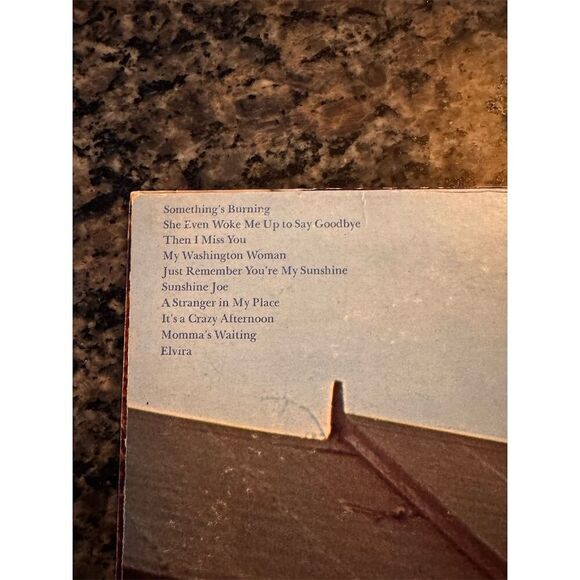 Something's Burning
She Even Woke Me Up to Say Goodbye
Then I Miss You
My Washington Woman
Just Remember You're My Sunshine
Sunshine Joe
A Stranger in My Place
It's a Crazy Afternoon
Momma's Waiting
Elvira